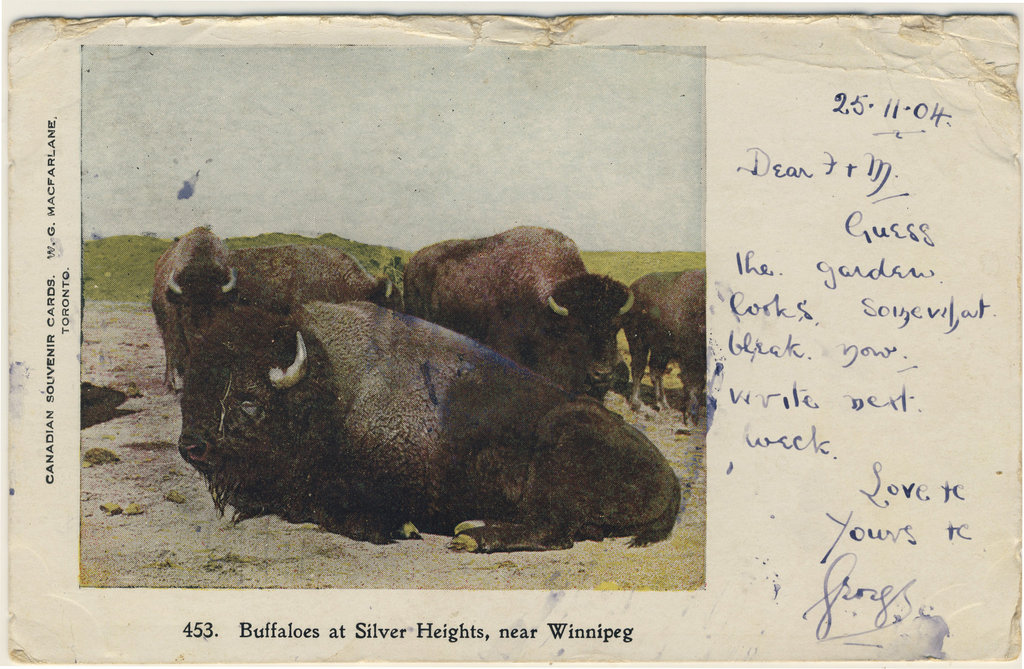 CANADIAN SOUVENIR CARDS. W. G. MACFARLANE,
TORONTO.
25·11·04.
Dear F + M.
Guess
the. garden
looks. somewhat.
bleak. now.
write next.
week.
Love to
Yours to
George
453. Buffaloes at Silver Heights, near Winnipeg